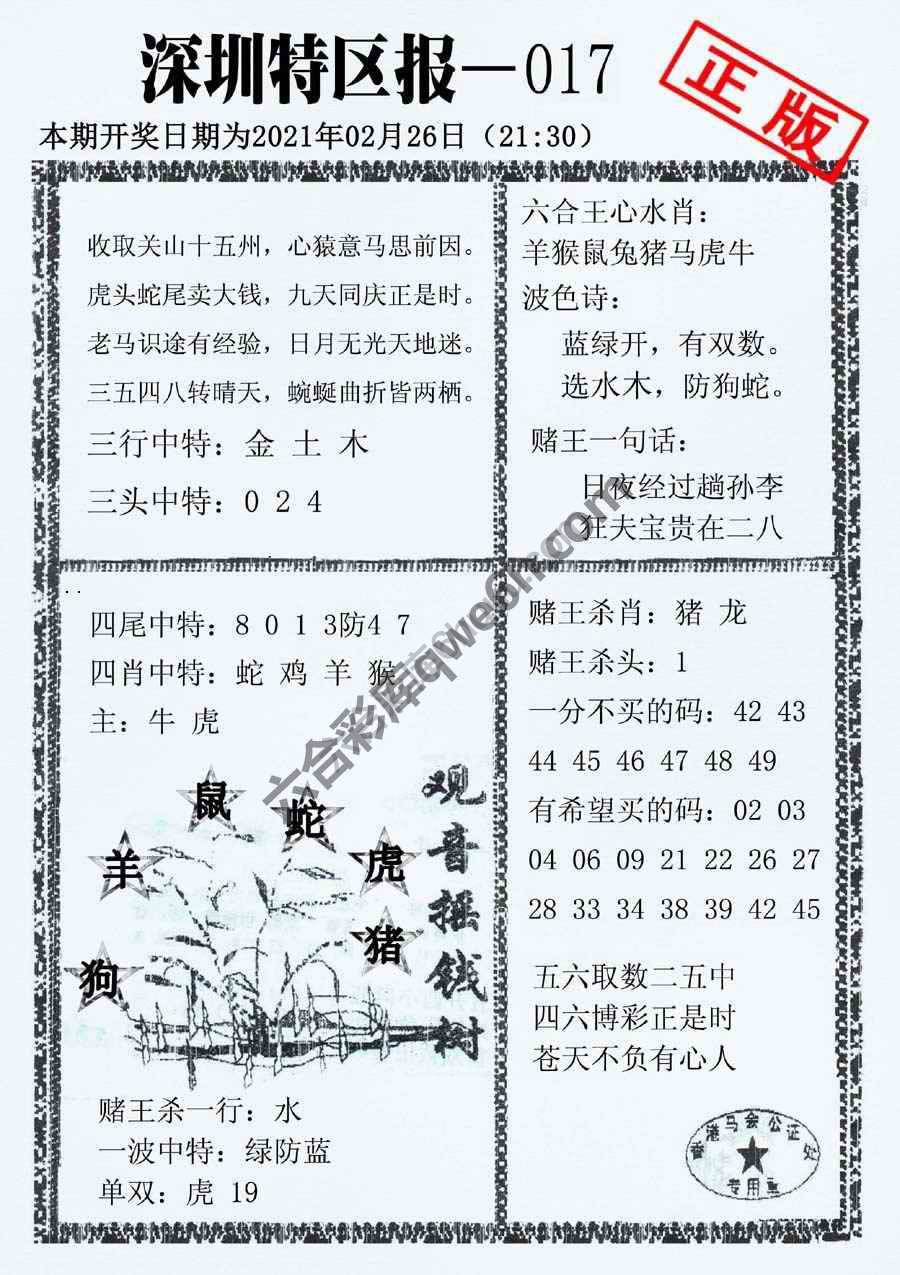 深圳特区报—017
正版
本期开奖日期为2021年02月26日（21:30）
收取关山十五州，心猿意马思前因。
虎头蛇尾卖大钱，九天同庆正是时。
老马识途有经验，日月无光天地迷。
三五四八转晴天，蜿蜒曲折皆两栖。
三行中特：金 土 木
三头中特：0 2 4
六合王心水肖：
羊猴鼠兔猪马虎牛
波色诗：
蓝绿开，有双数。
选水木，防狗蛇。
赌王一句话：
日夜经过趟孙李
狂夫宝贵在二八
四尾中特：8 0 1 3防4 7
四肖中特：蛇 鸡 羊 猴
主：牛 虎
鼠
蛇
羊
虎
狗
猪
观音摇钱树
赌王杀一行：水
一波中特：绿防蓝
单双：虎 19
赌王杀肖：猪 龙
赌王杀头：1
一分不买的码：42 43
44 45 46 47 48 49
有希望买的码：02 03
04 06 09 21 22 26 27
28 33 34 38 39 42 45
五六取数二五中
四六博彩正是时
苍天不负有心人
香港马会公证处
专用章
六合彩库qwe6h.com